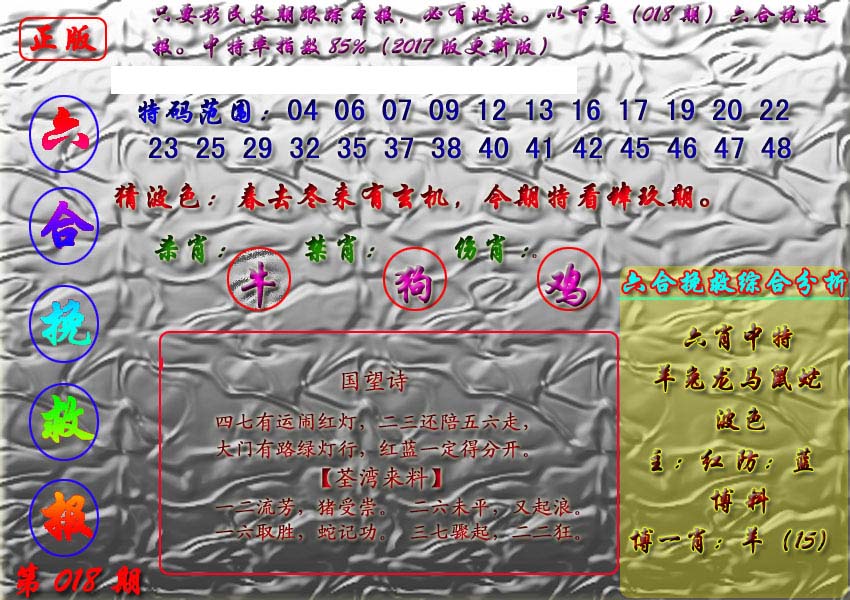 正版
只要彩民长期跟踪本报，必有收获。以下是（018期）六合挽救
报。中特率指数85%（2017版更新版）
六合挽救报
第018期
特码范围：04 06 07 09 12 13 16 17 19 20 22
23 25 29 32 35 37 38 40 41 42 45 46 47 48
猜波色：春去冬来有玄机，今期特看肆玖期。
杀肖：牛 禁肖：狗 伤肖：。鸡
国望诗
四七有运闹红灯，二三还陪五六走，
大门有路绿灯行，红蓝一定得分开。
【荃湾来料】
一二流芳，猪受崇。 二六未平，又起浪。
一六取胜，蛇记功。 三七骤起，二二狂。
六合挽救综合分析
六肖中特
羊兔龙马鼠蛇
波色
主：红防：蓝
博料
博一肖：羊（15）